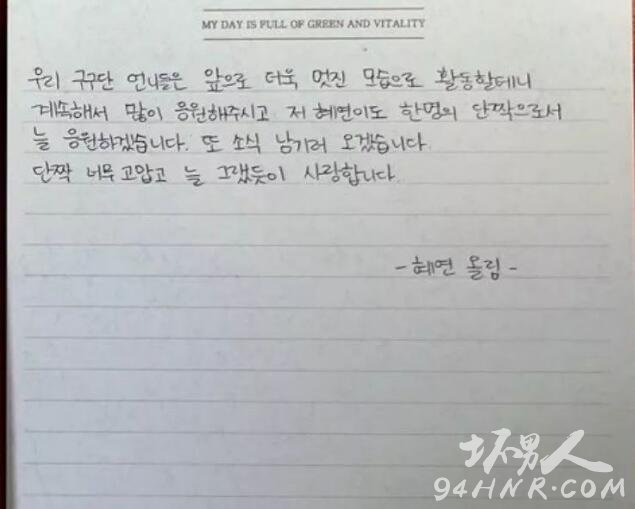 MY DAY IS FULL OF GREEN AND VITALITY
우리 구구단 언니들은 앞으로 더욱 멋진 모습으로 활동할테니
계속해서 많이 응원해주시고 저 혜연이도 한명의 단짝으로서
늘 응원하겠습니다. 또 소식 남기러 오겠습니다
단짝 너무 고맙고 늘 그랬듯이 사랑합니다.
- 혜연 올림 -
坏男人
94HNR.COM